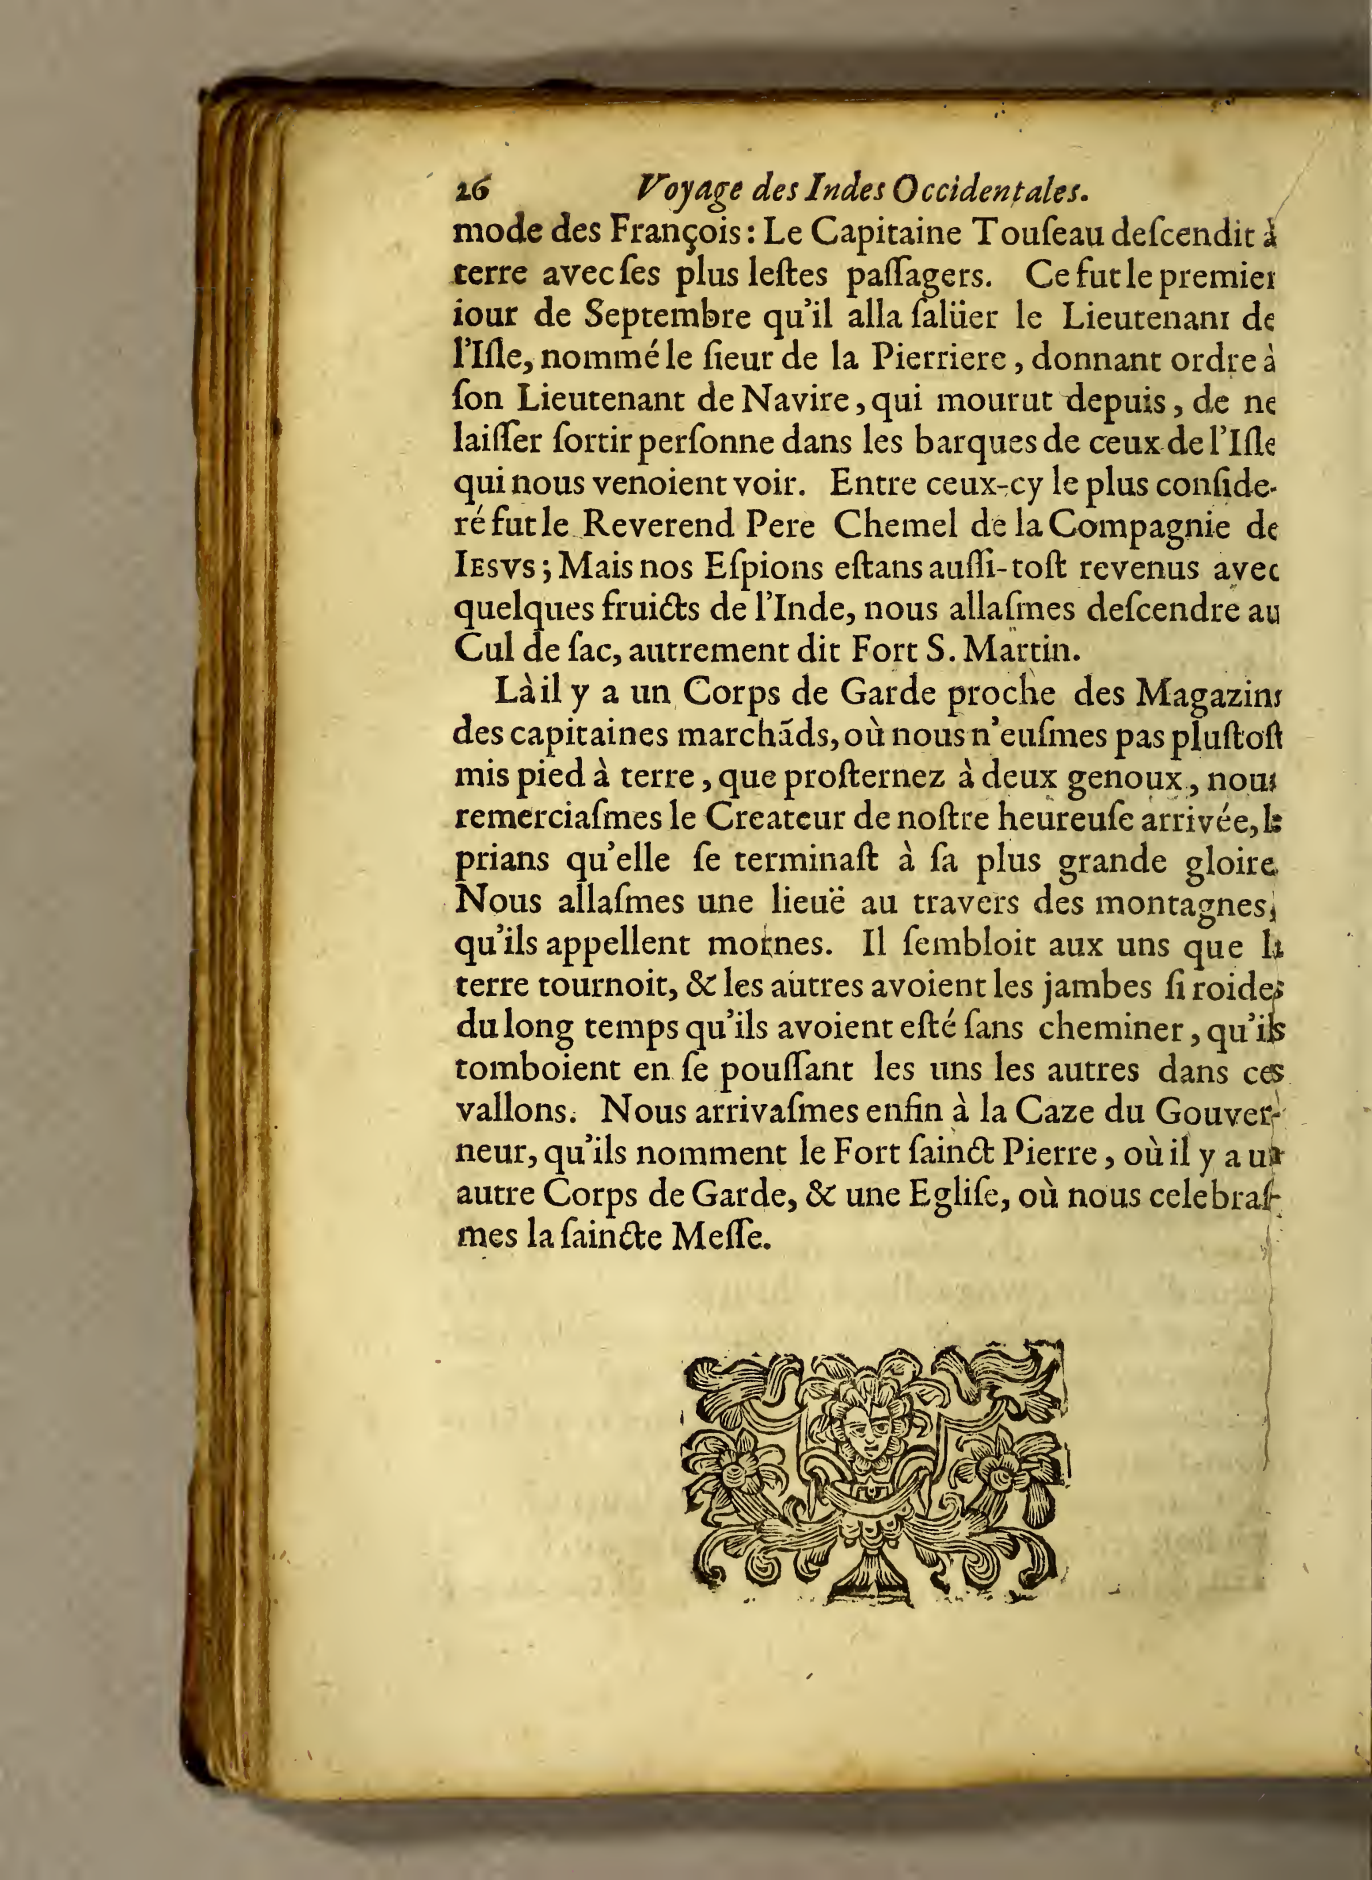 26 Voyage des Indes Occidentales.
mode des François : Le Capitaine Touſeau deſcendit à
terre avec ſes plus leſtes paſſagers. Ce fut le premier
iour de Septembre qu'il alla ſalüer le Lieutenant de
l'Iſle, nommé le ſieur de la Pierriere, donnant ordre à
ſon Lieutenant de Navire, qui mourut depuis, de ne
laiſſer ſortir perſonne dans les barques de ceux de l'Iſle
qui nous venoient voir. Entre ceux-cy le plus conſide-
ré fut le Reverend Pere Chemel de la Compagnie de
IESVS ; Mais nos Eſpions eſtans auſſi-toſt revenus avec
quelques fruicts de l'Inde, nous allaſmes deſcendre au
Cul de ſac, autrement dit Fort S. Martin.
Là il y a un Corps de Garde proche des Magazins
des capitaines marchãds, où nous n'euſmes pas pluſtoſt
mis pied à terre, que proſternez à deux genoux, nous
remerciaſmes le Createur de noſtre heureuſe arrivée, le
prians qu'elle ſe terminaſt à ſa plus grande gloire.
Nous allaſmes une lieuë au travers des montagnes,
qu'ils appellent mornes. Il ſembloit aux uns que la
terre tournoit, & les autres avoient les jambes ſi roides
du long temps qu'ils avoient eſté ſans cheminer, qu'ils
tomboient en ſe pouſſant les uns les autres dans ces
vallons. Nous arrivaſmes enfin à la Caze du Gouver-
neur, qu'ils nomment le Fort ſainct Pierre, où il y a un
autre Corps de Garde, & une Egliſe, où nous celebraſ-
mes la ſaincte Meſſe.